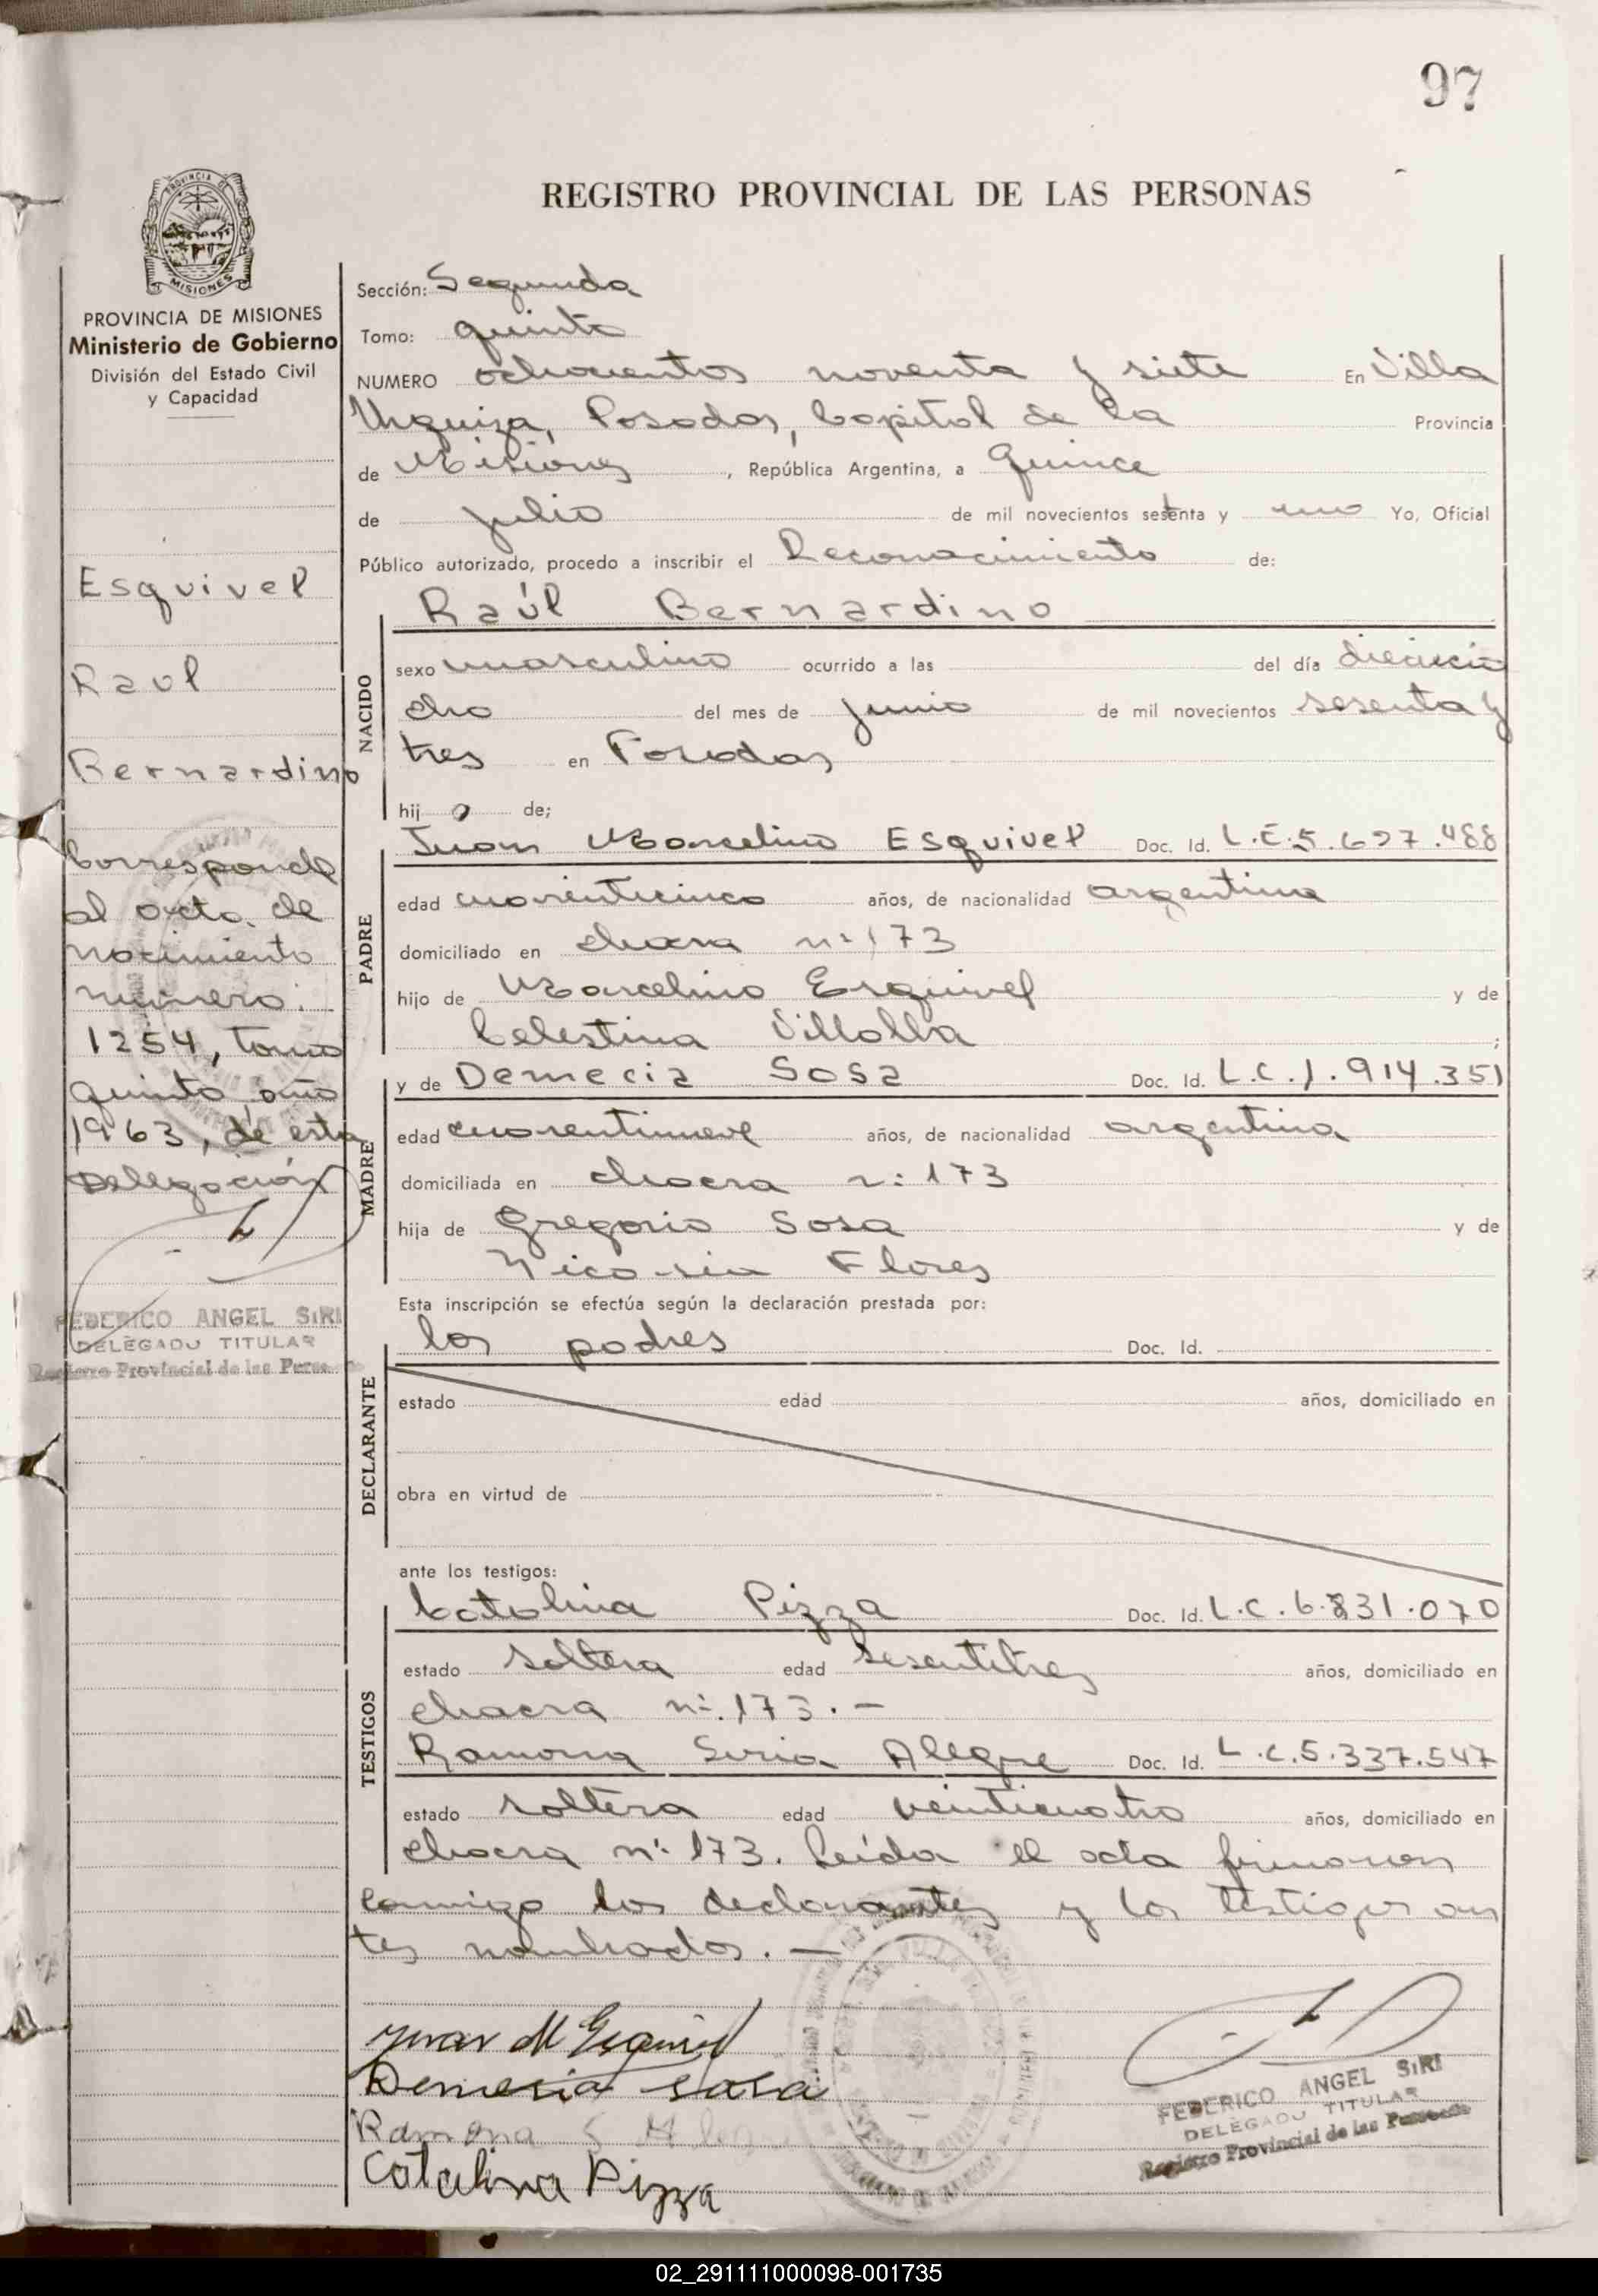 97
REGISTRO PROVINCIAL DE LAS PERSONAS
PROVINCIA DE MISIONES
Ministerio de Gobierno
División del Estado Civil
y Capacidad
Esquivel
Raul
Bernardino
Corresponde
al acta de
nacimiento
número:
1254, tomo
quinto año
1963, de esta
Delegación
FEDERICO ANGEL SIRI
DELEGADO TITULAR
Registro Provincial de las Personas
Sección: Segunda
Tomo: quinto
NUMERO ochocientos noventa y siete En Villa
Urquiza, Posadas, Capital de la Provincia
de Misiones, República Argentina, a quince
de julio de mil novecientos setenta y uno Yo, Oficial
Público autorizado, procedo a inscribir el Reconocimiento de:
Raúl Bernardino
NACIDO
sexo masculino ocurrido a las del día dieciocho
cho del mes de junio de mil novecientos sesenta y
tres en Posadas
hij o de;
PADRE
Juan Marcelino Esquivel Doc. Id. L.E.5.697.488
edad cuarenticinco años, de nacionalidad argentina
domiciliado en chacra nº 173
hijo de Marcelino Esquivel y de
Celestina Villalba ;
MADRE
y de Demecia Sosa Doc. Id. L.C.1.914.351
edad cuarentinueve años, de nacionalidad argentina
domiciliada en chacra n: 173
hija de Gregorio Sosa y de
Nicasia Flores
Esta inscripción se efectúa según la declaración prestada por:
los padres Doc. Id.
DECLARANTE
estado edad años, domiciliado en
obra en virtud de
ante los testigos:
TESTIGOS
Catalina Pizza Doc. Id. L.C.6.831.070
estado soltera edad sesentitres años, domiciliado en
chacra nº. 173. —
Ramona Alegre Doc. Id. L.C.5.337.547
estado soltera edad veinticuatro años, domiciliado en
chacra nº 173. Leída el acta firmaron
conmigo los declarantes y los testigos an
tes nombrados. —
Juan M Esquivel
Demesia sosa
Ramona S Alegre
Catalina Pizza
FEDERICO ANGEL SIRI
DELEGADO TITULAR
Registro Provincial de las Personas
02_291111000098-001735